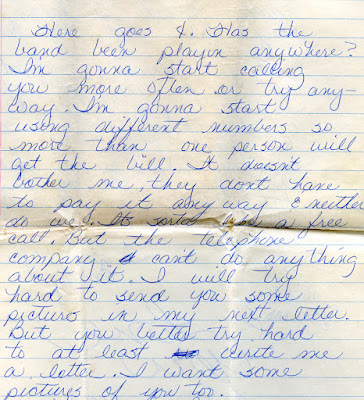 Here goes I. Has the
band been playin anywhere?
I'm gonna start calling
you more often or try any-
way. I'm gonna start
using different numbers so
more than one person will
get the bill. It doesnt
bother me, they dont have
to pay it anyway & neither
do we. Its sorta like a free
call. But the telephone
company can't do anything
about it. I will try
hard to send you some
picturs in my next letter.
But you better try hard
to at least write me
a letter. I want some
pictures of you too.